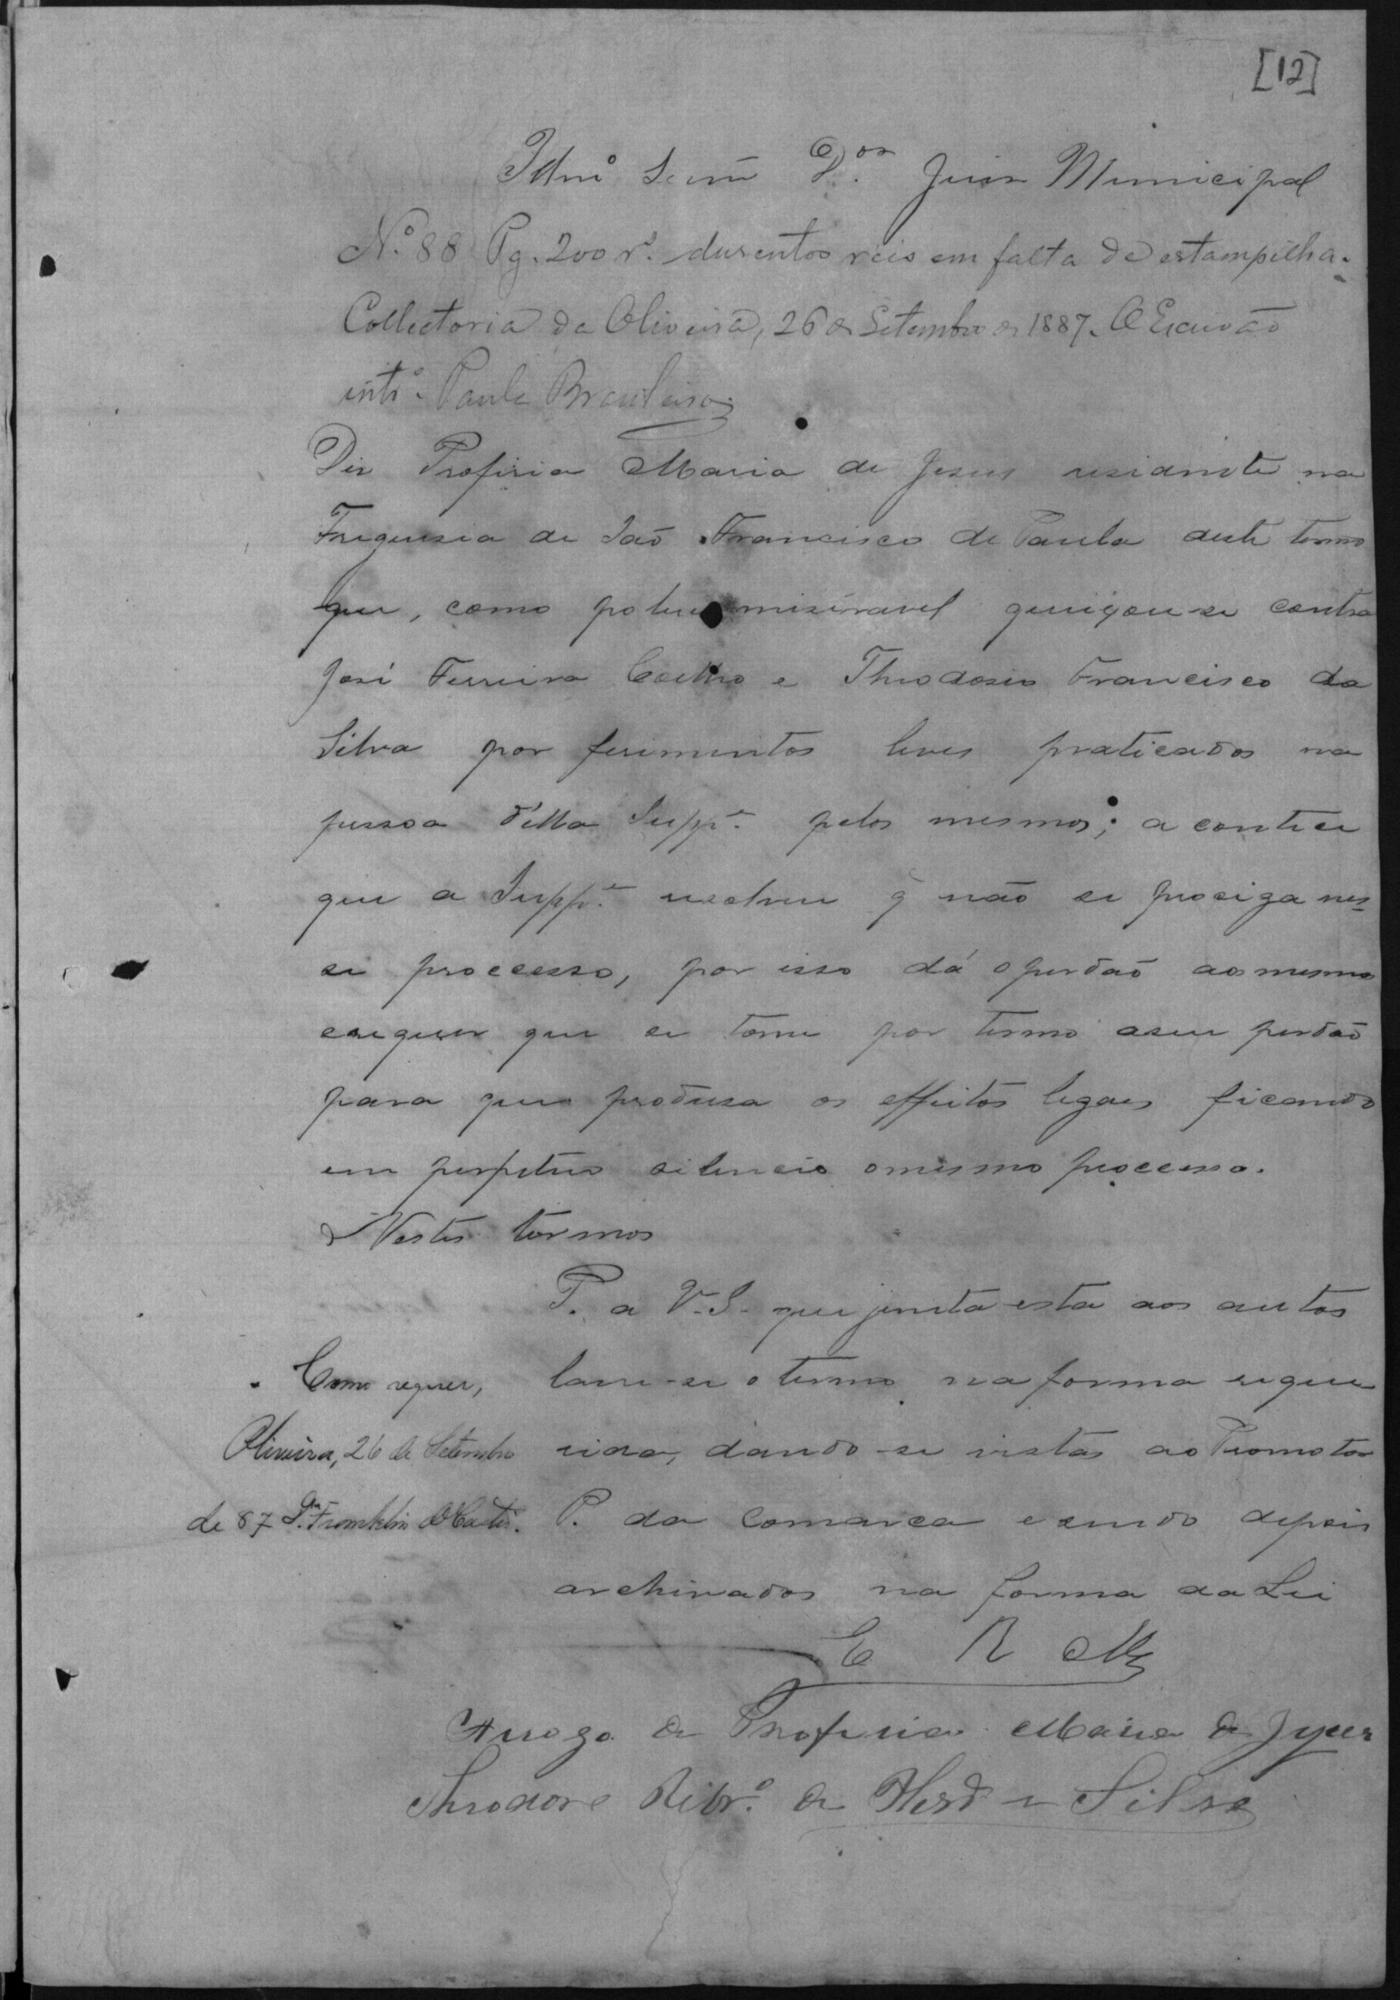 [12]
Illmº Senr Dor. Juiz Municipal
Nº 88 Pg. 200 rs. dusentos reis em falta de estampilha.
Collectoria da Oliveira, 26 de Setembro de 1887. O Escrivão
intº. Paula Brasileiro
Diz Profiria Maria de Jesus residente na
Freguesia de São Francisco de Paula deste termo
que, como pobre miseravel queixou-se contra
José Ferreira Coelho e Theodosio Francisco da
Silva por ferimentos leves praticados na
pessoa d'ella Suppe. pelos mesmos; acontece
que a Suppe. resolveu q̃ não se prosiga nes-
se processo, por isso dá o perdão ao mesmo
e requer que se tome por termo o seu perdão
para que produsa os effeitos legaes ficando
em perpetuo silencio o mesmo processo.
Nestes termos
P. a V. S. que junta esta aos autos
lavre-se o termo na forma reque
rida, dando-se vistas ao Promotor
P. da Comarca e sendo depois
archivados na forma da Lei
E R Mce
Como requer,
Oliveira, 26 de Setembro
de 87 Dr. Franklin de Castro.
Arrogo de Profiria Maria de Jesus
Theodoro Ribrº. de e Silva